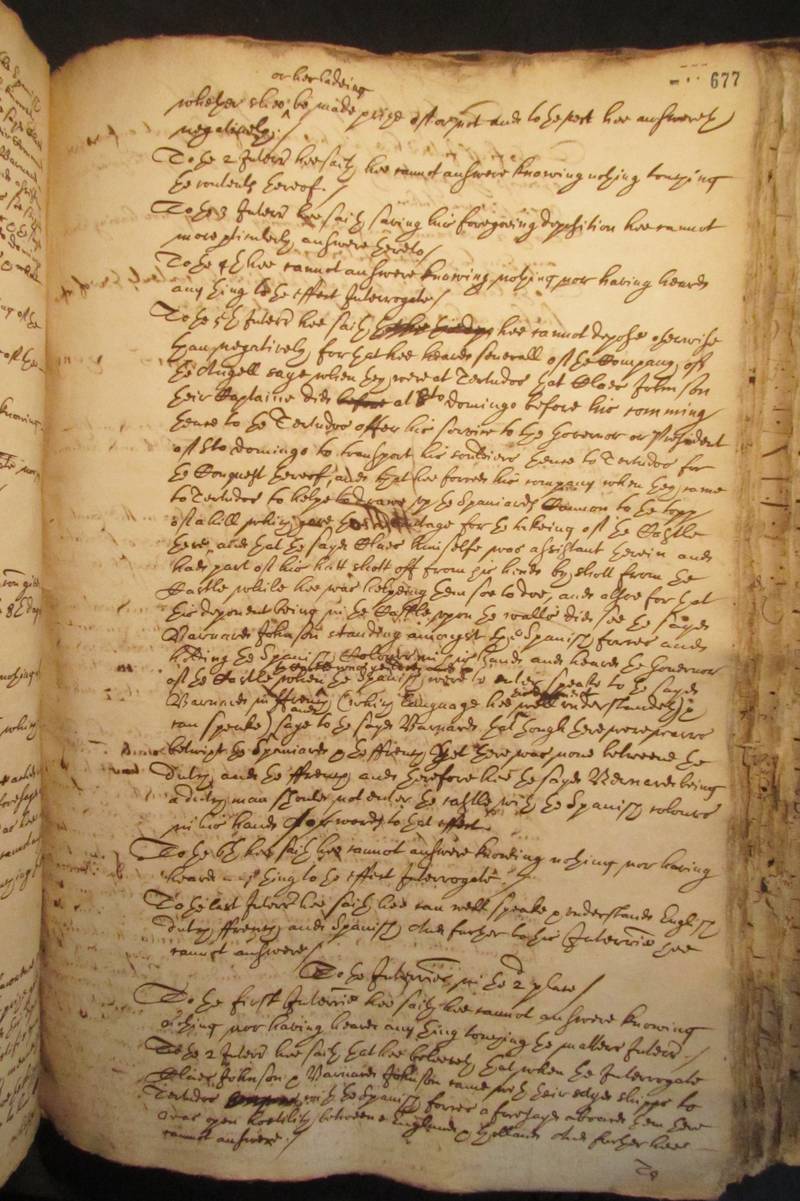 677
or her ladeing
whether shee be made prize of or not and to the rest hee answereth
negatively./
To the 2 Interr hee saith hee cannot answere knowing nothing touching
the contents thereof./
To the 3 Interr hee saith saving his foregoeing deposition hee cannot
more perticulerly answere thereto/
To the 4th hee cannot answere knowing nothing nor having heard
any thing to the effect Interrogate/
To the 5th Interr hee saith hee cannot depose otherwise
than negatively for that hee heard severall of the Company of
the Angell saye when they were at Tertudos that Claes Johnson
their Captaine did before at Sto Domingo before his comming
thence to the Tertudos offer his service to the Governor or President
of Sto Domingo to transport his souldiers thence to Tertudos for
the Conquest thereof, and that hee forced his company when they came
to Tertudos to helpe up the Spaniards Cannon to the topp
of a hill which gave for the takeing of the Castle
there, and that the sayd Claes himselfe was assistant therein and
had part of his hatt shott off from his head by shott from the
Castle while hee was helpeing them soe to doe, and alsoe for that
this deponent being in the Castle upon the walls did see the sayd
Barnard Johnson standing amongst the Spanish forces and
holding the Spanish Colours in his hands and heard the Governor
of the Castle when the Spanish were to enter speake to the sayd
Barnard in ffrench (which language hee well understandeth and
can speake) saye to the sayd Barnard that though there were warrs
betwixt the Spaniards & the ffrench yet there was none betweene the
dutch and the ffrench and therefore hee the sayd Bernard being
a dutch man should not enter the castle with the Spanish colours
in his hands or words to that effect
To the 6th hee saith hee cannot answere knowing nothing nor having
heard any thing to the effect Interrogate
To the last Interr hee saith hee can well speake & understand English
dutch ffrench and Spanish And further to this Interrie hee
cannot answere/
To the Interries in the 2 place/
To the first Interrie hee saith hee cannot answere knowing
nothing nor having heard any thing touching the matters Interr./
To the 2 Interr hee saith that hee beleeveth that when the Interrogate
Claes Johnson & Barnard Johnson came with their sayd shipps to
Tertudos with the Spanish forces aforesayd aboard them there
was open hostility betweene England & Holland And further hee
cannot answere./
To